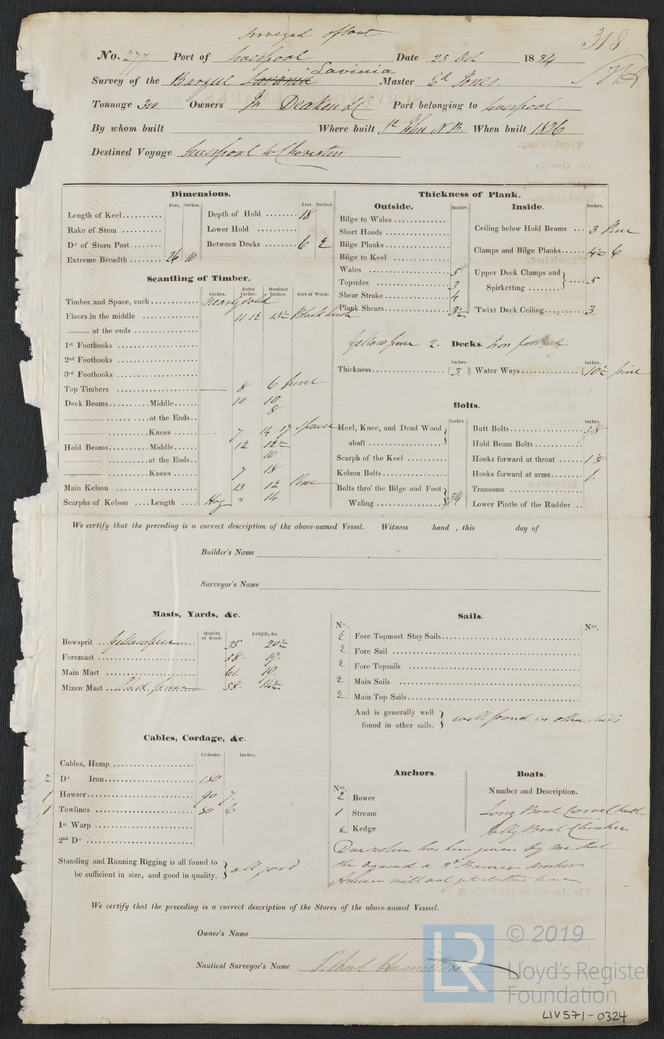 Surveyed afloat
318
No. 277 Port of Liverpool Date 23 Oct 1834
Survey of the Barque Lavinia Master Ed. Jones
Tonnage Owners Jn. Port belonging to Liverpool
By whom built Where built St. John N.B. When built 1826
Destined Voyage Liverpool to Charleston
Dimensions.
Feet. Inches.
Length of Keel
Rake of Stem
Do of Stern Post
Extreme Breadth 26 10
Feet. Inches.
Depth of Hold 18
Lower Hold
Between Decks 6 2
Scantling of Timber.
Inches. Sided Inches. Moulded Inches. Sort of Wood.
Timber and Space, each
Floors in the middle 11 12 Black birch
—— at the ends
1st Foothooks
2nd Foothooks
3rd Foothooks
Top Timbers 8 6 pine
Deck Beams Middle 10 10
at the Ends 8
Knees 7 14 17 Spruce
Hold Beams Middle 12 12
at the Ends 10
Knees 7 18
Main Kelson 23 12 Pine
Scarphs of Kelson Length 14
Thickness of Plank.
Outside.
Inches.
Bilge to Wales
Short Hoods
Bilge Planks
Bilge to Keel
Wales 5
Topsides 3
Shear Strake 4
Plank Shears 3
Inside.
Inches.
Ceiling below Hold Beams 3 Pine
Clamps and Bilge Planks 4 6
Upper Deck Clamps and Spirketting 5
Twixt Deck Ceiling 3
Yellow pine 2. Decks.
Inches.
Thickness 3
Inches.
Water Ways 10 pine
Bolts.
Inches
Heel, Knee, and Dead Wood abaft
Scarph of the Keel
Kelson Bolts
Bolts thro' the Bilge and Foot Waling 3/4
Inches.
Butt Bolts 5/8
Hold Beam Bolts
Hooks forward at throat
Hooks forward at arms 1
Transoms
Lower Pintle of the Rudder
We certify that the preceding is a correct description of the above-named Vessel. Witness hand, this day of
Builder's Name
Surveyor's Name
Masts, Yards, &c.
Quality of Wood. Length, &c.
Bowsprit Yellow pine 35 20
Foremast 58 19
Main Mast 61 19
Mizen Mast 58 14
Sails.
No. No.
2 Fore Topmast Stay Sails
2 Fore Sail
2 Fore Topsails
2 Main Sails
2 Main Top Sails
And is generally well found in other sails. well found in other Sails
Cables, Cordage, &c.
Fathoms. Inches.
Cables, Hemp
2 Do Iron 180
1 Hawser 90 7
1 Towlines 6
1st Warp
2nd Do
Standing and Running Rigging is all found to be sufficient in size, and good in quality. all good
Anchors.
No.
2 Bower
1 Stream
2 Kedge
Boats.
Number and Description.
Long Boat Carvel built
Jolly Boat Clincher
Due notice has been given by me that
We certify that the preceding is a correct description of the Stores of the above-named Vesssel.
Owner's Name
Nautical Surveyor's Name Robert Hamilton
LR
© 2019
Lloyd's Register
Foundation
LIV571-0324